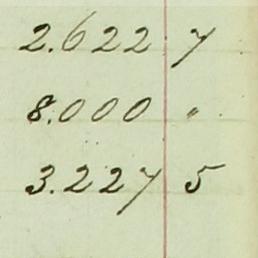 2.622 7
8.000 "
3.227 5